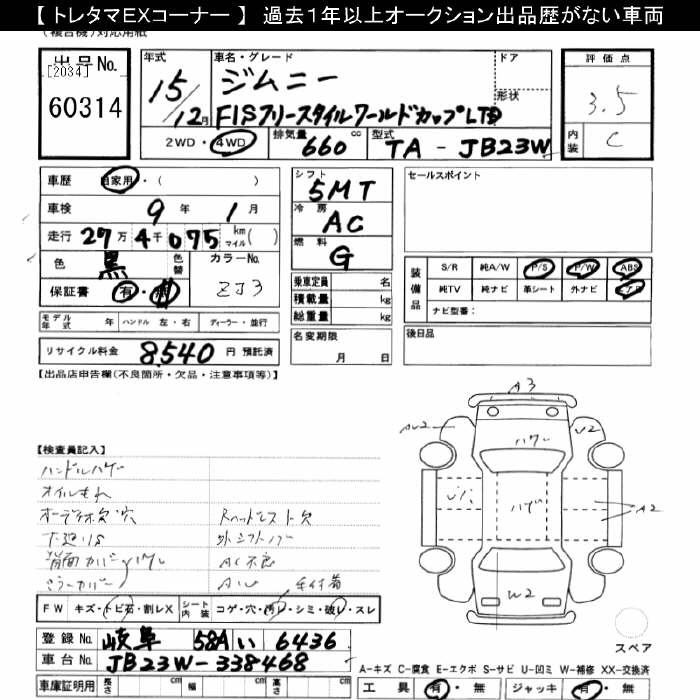 【 トレタマEXコーナー 】 過去１年以上オークション出品歴がない車両
(複合機)対応用紙
出品No.
[2034]
60314
年式
15/12月
車名・グレード
ジムニー
FISフリースタイルワールドカップLTD
ドア
形状
2WD・4WD
排気量
660 cc
型式
TA - JB23W
評価点
3.5
内装
C
車歴 自家用・( )
車検 9 年 1 月
走行 27万 4千 075 km マイル( )
色 黒 色替
カラーNo.
ZJ3
保証書 有・無
シフト
5MT
冷房
AC
燃料
G
セールスポイント
装備品
S/R 純A/W P/S P/W ABS
純TV 純ナビ 革シート 外ナビ エアB
ナビ型番：
乗車定員 名
積載量 kg
総重量 kg
モデル年式 年 ハンドル 左・右 ディーラー・並行
名変期限
月 日
後日品
リサイクル料金 8,540 円 預託済
【出品店申告欄(不良箇所・欠品・注意事項等)】
【検査員記入】
ハンドルハゲ
オイルもれ
オーディオ欠 穴
下廻りS
背面カバーハゲ
ミラーカバー
Rヘッドレスト欠
外シフトノブ
AC不良
A3
U2
A2
ハゲ
W2
FW キズ・トビ石・割レX
シート内装 コゲ・穴・汚レ・シミ・破レ・スレ
登録No. 岐阜 58A い 6436
車台No. JB23W-338468
車庫証明用 長さ cm 幅 cm 高さ cm
スペア
A-キズ C-腐食 E-エクボ S-サビ U-凹ミ W-補修 XX-交換済
工具 有・無 ジャッキ 有・無